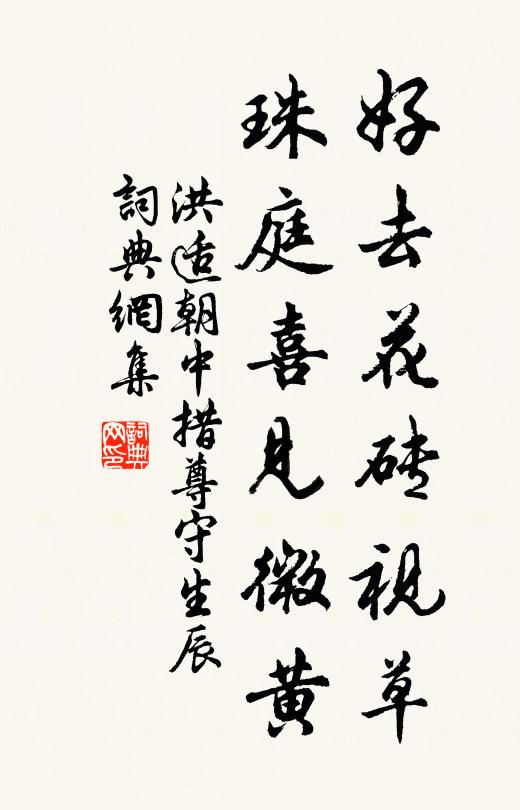 好去花砖視草
珠庭喜見微黄
洪适朝中措尊守生辰
詞典網集
詞典网印